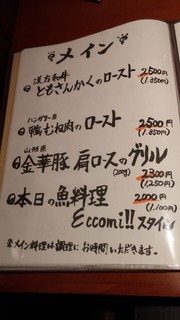 メイン
漢方和牛
ともさんかくのロースト 2,500円
(1,350円)
ハンガリー産
鴨むね肉のロースト 2,500円
(1,350円)
山形県
金華豚 肩ロースのグリル 2,300円
(200g) (1,250円)
本日の魚料理 2,000円
(1,100円)
Eccomi!! スタイル
※メイン料理は調理にお時間いただきます。